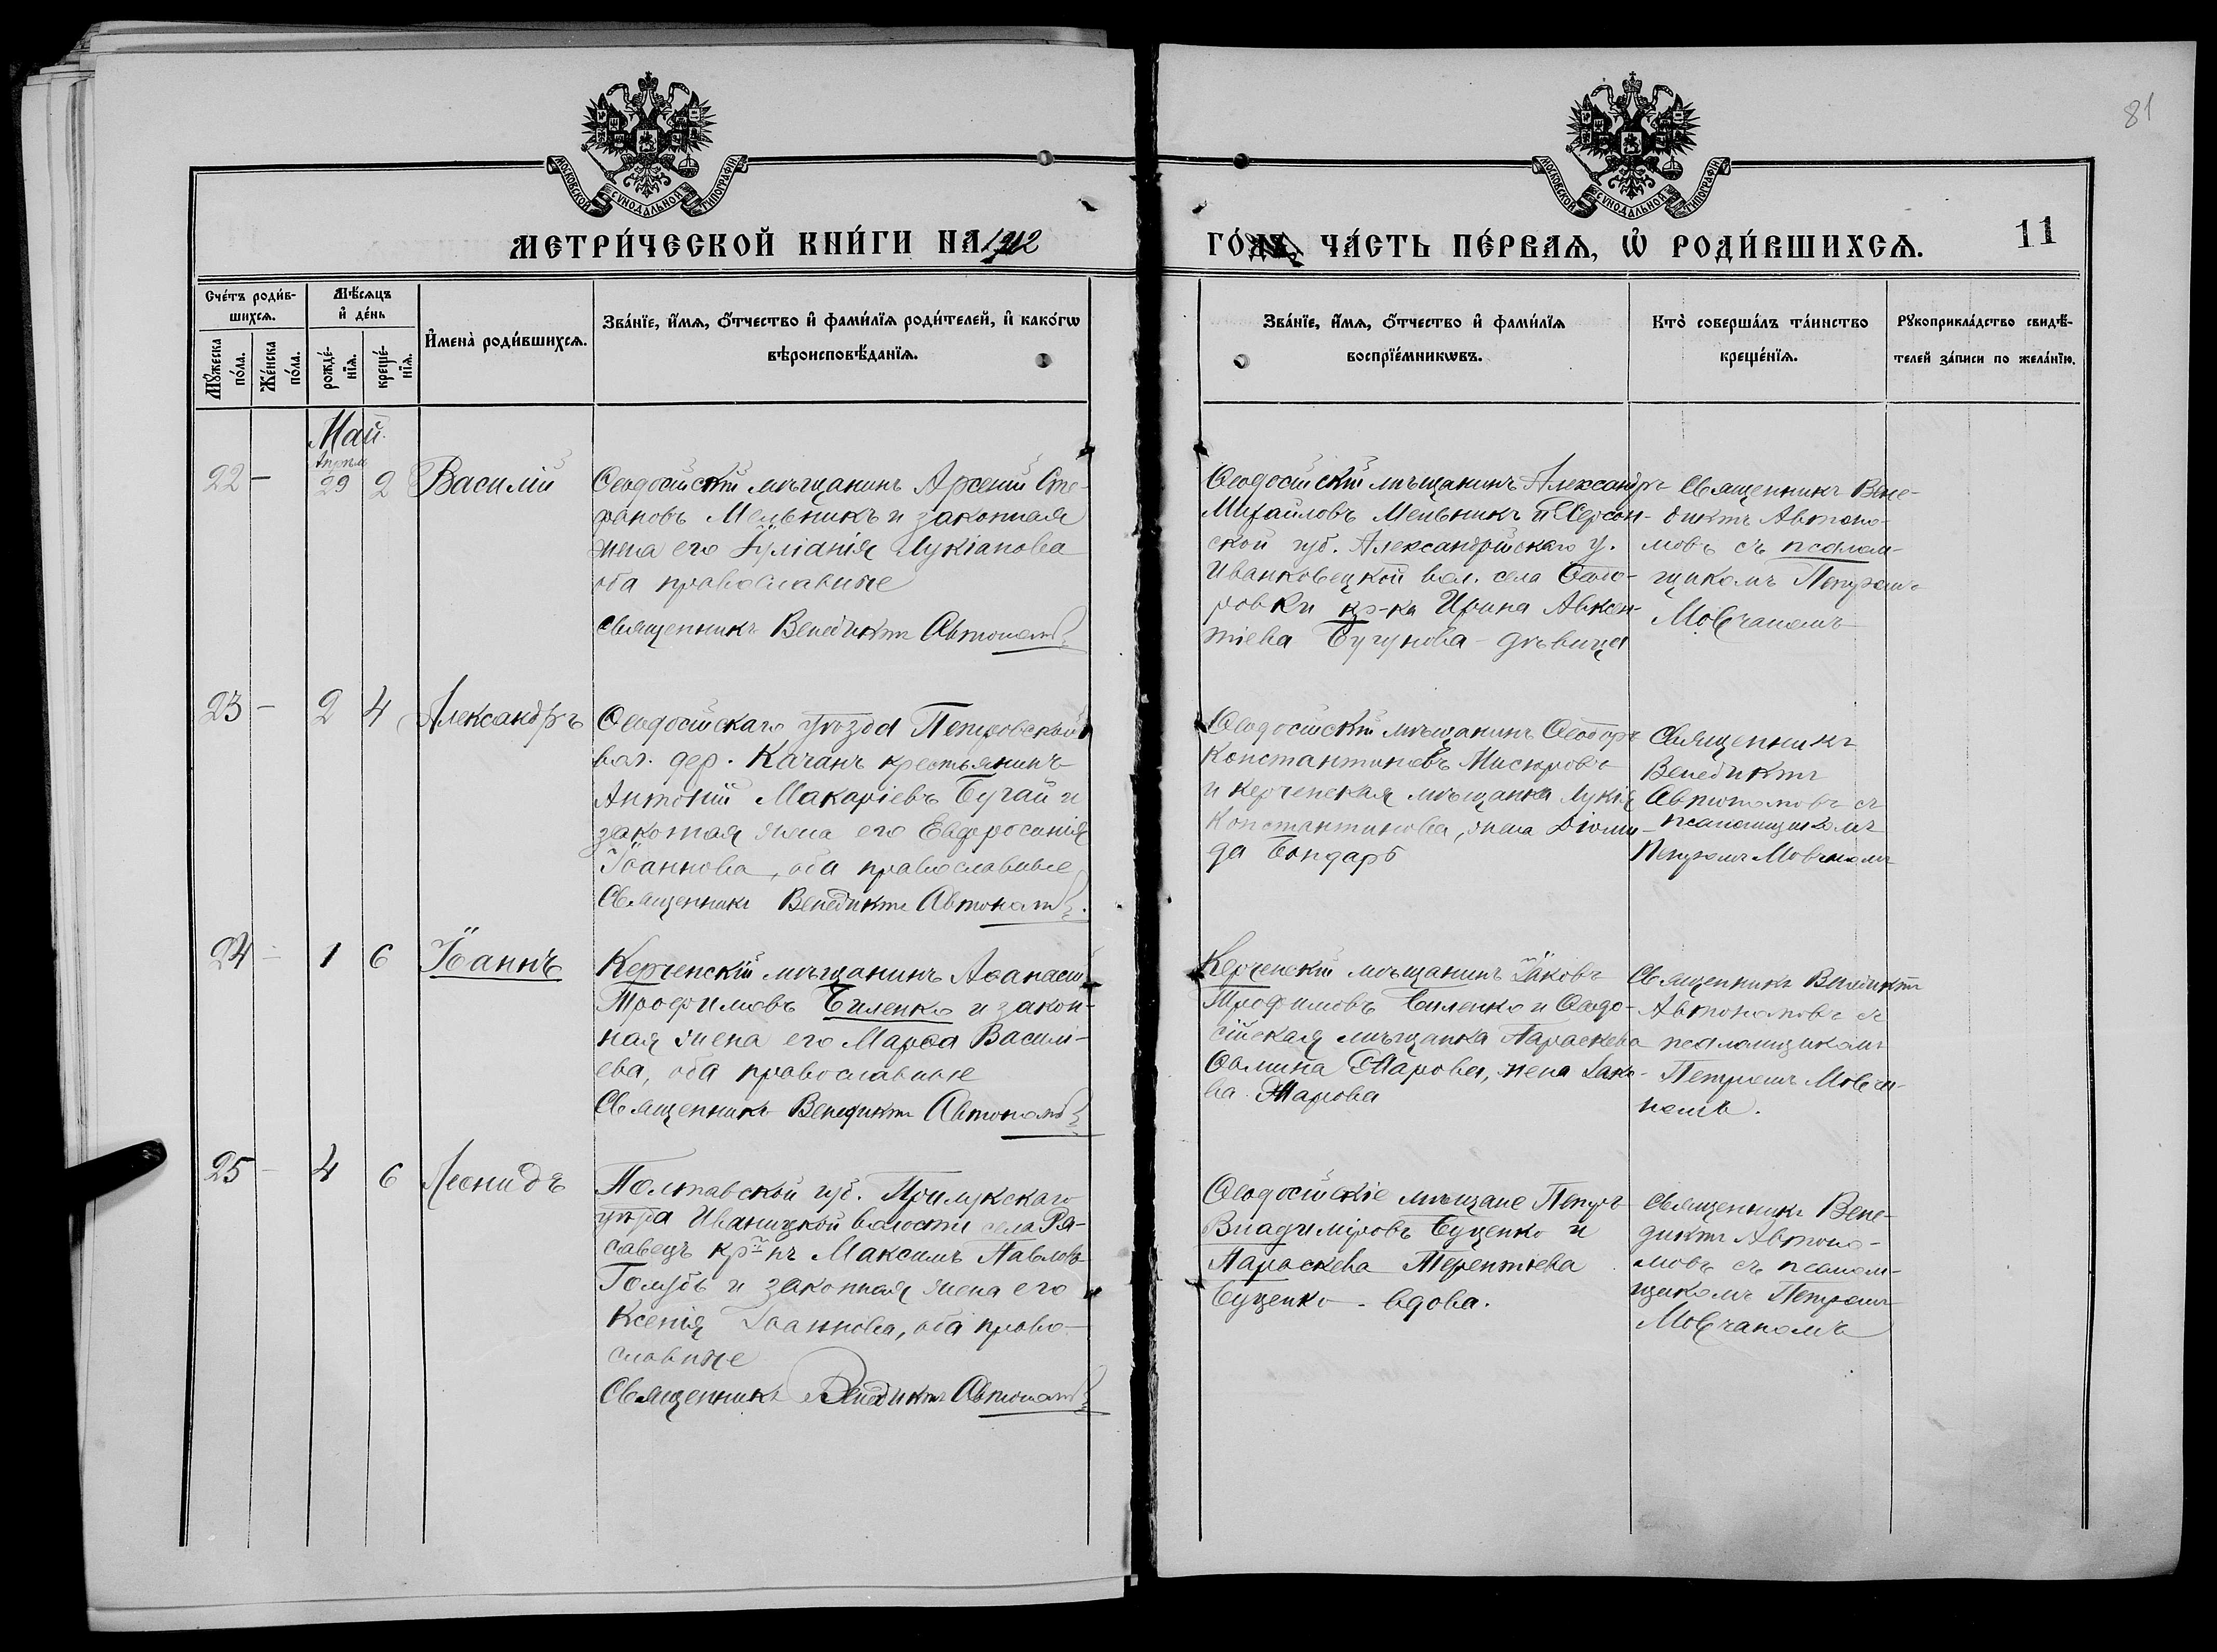 81
МОСКОВСКОЙ СѴНОДАЛЬНОЙ ТИПОГРАФІИ
МОСКОВСКОЙ СѴНОДАЛЬНОЙ ТИПОГРАФІИ
МЕТРИ́ЧЕСКОЙ КНИ́ГИ НА 1912
ГО́ ЧА́СТЬ ПЕ́РВАѦ, Ѡ҆ РОДИ́ВШИХСѦ.
11
Сче́тъ роди́в-
шихсѧ.
Мꙋ́жеска
по́ла.
Же́нска
по́ла.
Мѣ́сѧцъ
и҆ де́нь
рожде́-
нїѧ.
креще́-
нїѧ.
И҆мена̀ роди́вшихсѧ.
Зва́нїе, и҆́мѧ, ѻ҆́тчество и҆ фами́лїѧ роди́телей, и҆ како́гѡ
вѣроисповѣ́данїѧ.
Зва́нїе, и҆́мѧ, ѻ҆́тчество и҆ фами́лїѧ
воспрїе́мникѡвъ.
Кто̀ соверша́лъ та́инство
креще́нїѧ.
Рꙋкоприкла́дство свидѣ́-
телей за́писи по жела́нїю.
Май.
Апрѣл
22 - 29 2 Василій
Ѳеодосійскій мѣщанинъ Арсеній Сте-
фановъ Мельникъ и законная
жена его Іуліанія Лукіанова
оба православные
Священникъ Венедиктъ Автономовъ
Ѳеодосійскій мѣщанинъ Александръ
Михайловъ Мельникъ и Херсон-
ской губ. Александрійскаго у.
Иванковецкой вол. села Ѳедо-
ровки кр-ка Ирина Авксен-
тіева Бугунова - дѣвица
Священникъ Вене-
диктъ Автоно-
мовъ съ псалом-
щикомъ Петромъ
Мовчаномъ
23 - 2 4 Александръ
Ѳеодосійскаго уѣзда Петровской
вол. дер. Качанъ крестьянинъ
Антоній Макаріевъ Бугай и
законная жена его Евфросинія
Іоаннова, оба православные
Священникъ Венедиктъ Автономовъ.
Ѳеодосійскій мѣщанинъ Ѳеодоръ
Константиновъ Мисюровъ
и керченская мѣщанка Лукія
Константинова, жена Діоми-
да Бондарь
Священникъ
Венедиктъ
Автономовъ съ
псаломщикомъ
Петромъ Мовчаномъ
24 - 1 6 Іоаннъ
Керченскій мѣщанинъ Аѳанасій
Трофимовъ Биленко и закон-
ная жена его Марѳа Василі-
ева, оба православные
Священникъ Венедиктъ Автономовъ
Керченскій мѣщанинъ Іаковъ
Трофимовъ Биленко и Ѳеодо-
сійская мѣщанка Параскева
Ѳомина Жарова, жена Іако-
ва Жарова
Священникъ Венедиктъ
Автономовъ съ
псаломщикомъ
Петромъ Мовча-
номъ.
25 - 4 6 Леонидъ
Полтавской губ. Прилукскаго
уѣзда Иваницкой волости села Ря-
савецъ кр-нъ Максимъ Павловъ
Голубь и законная жена его
Ксенія Іоаннова, оба право-
славные
Священникъ Венедиктъ Автономовъ
Ѳеодосійскіе мѣщане Петръ
Владиміровъ Буценко и
Параскева Терентіева
Буценко - вдова.
Священникъ Вене-
диктъ Автоно-
мовъ съ псалом-
щикомъ Петромъ
Мовчаномъ